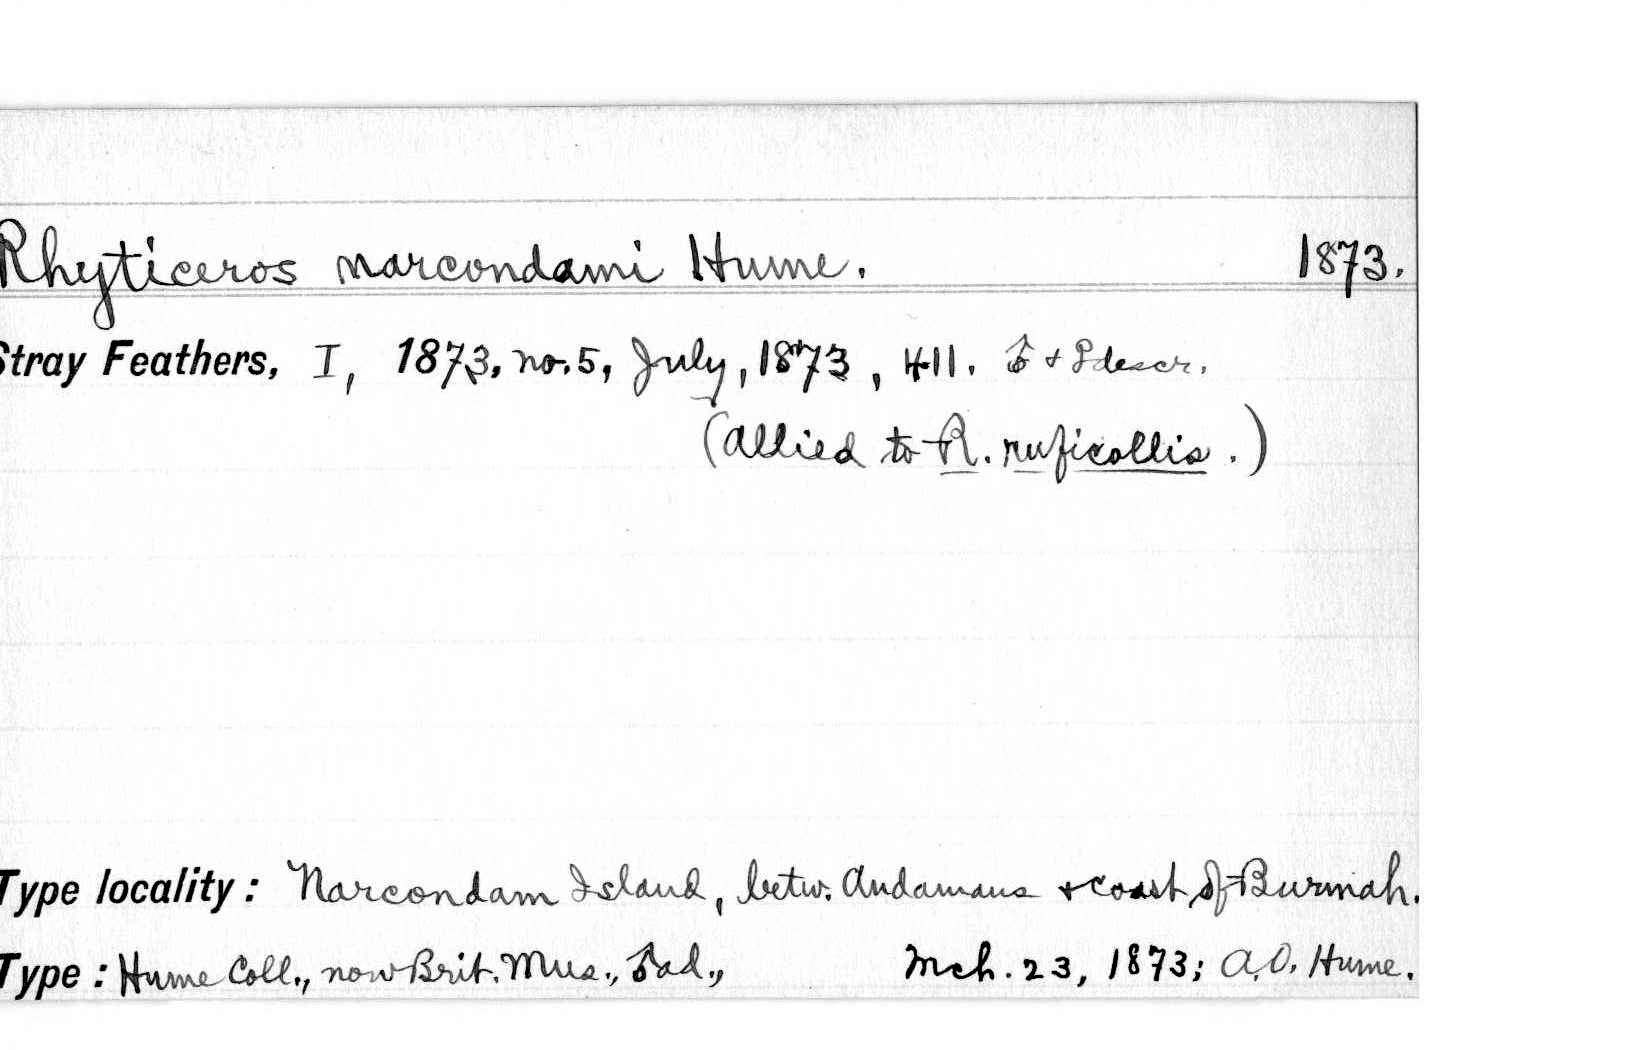 Rhyticeros narcondami Hume. 1873.
Stray Feathers, I, 1873, no. 5, July, 1873, 411. ♂ + ♀ descr.
(allied to R. ruficollis.)
Type locality: Narcondam Island, betw. Andamans + coast of Burmah.
Type: Hume Coll., now Brit. Mus., ♂ ad., Mch. 23, 1873; A.O. Hume.